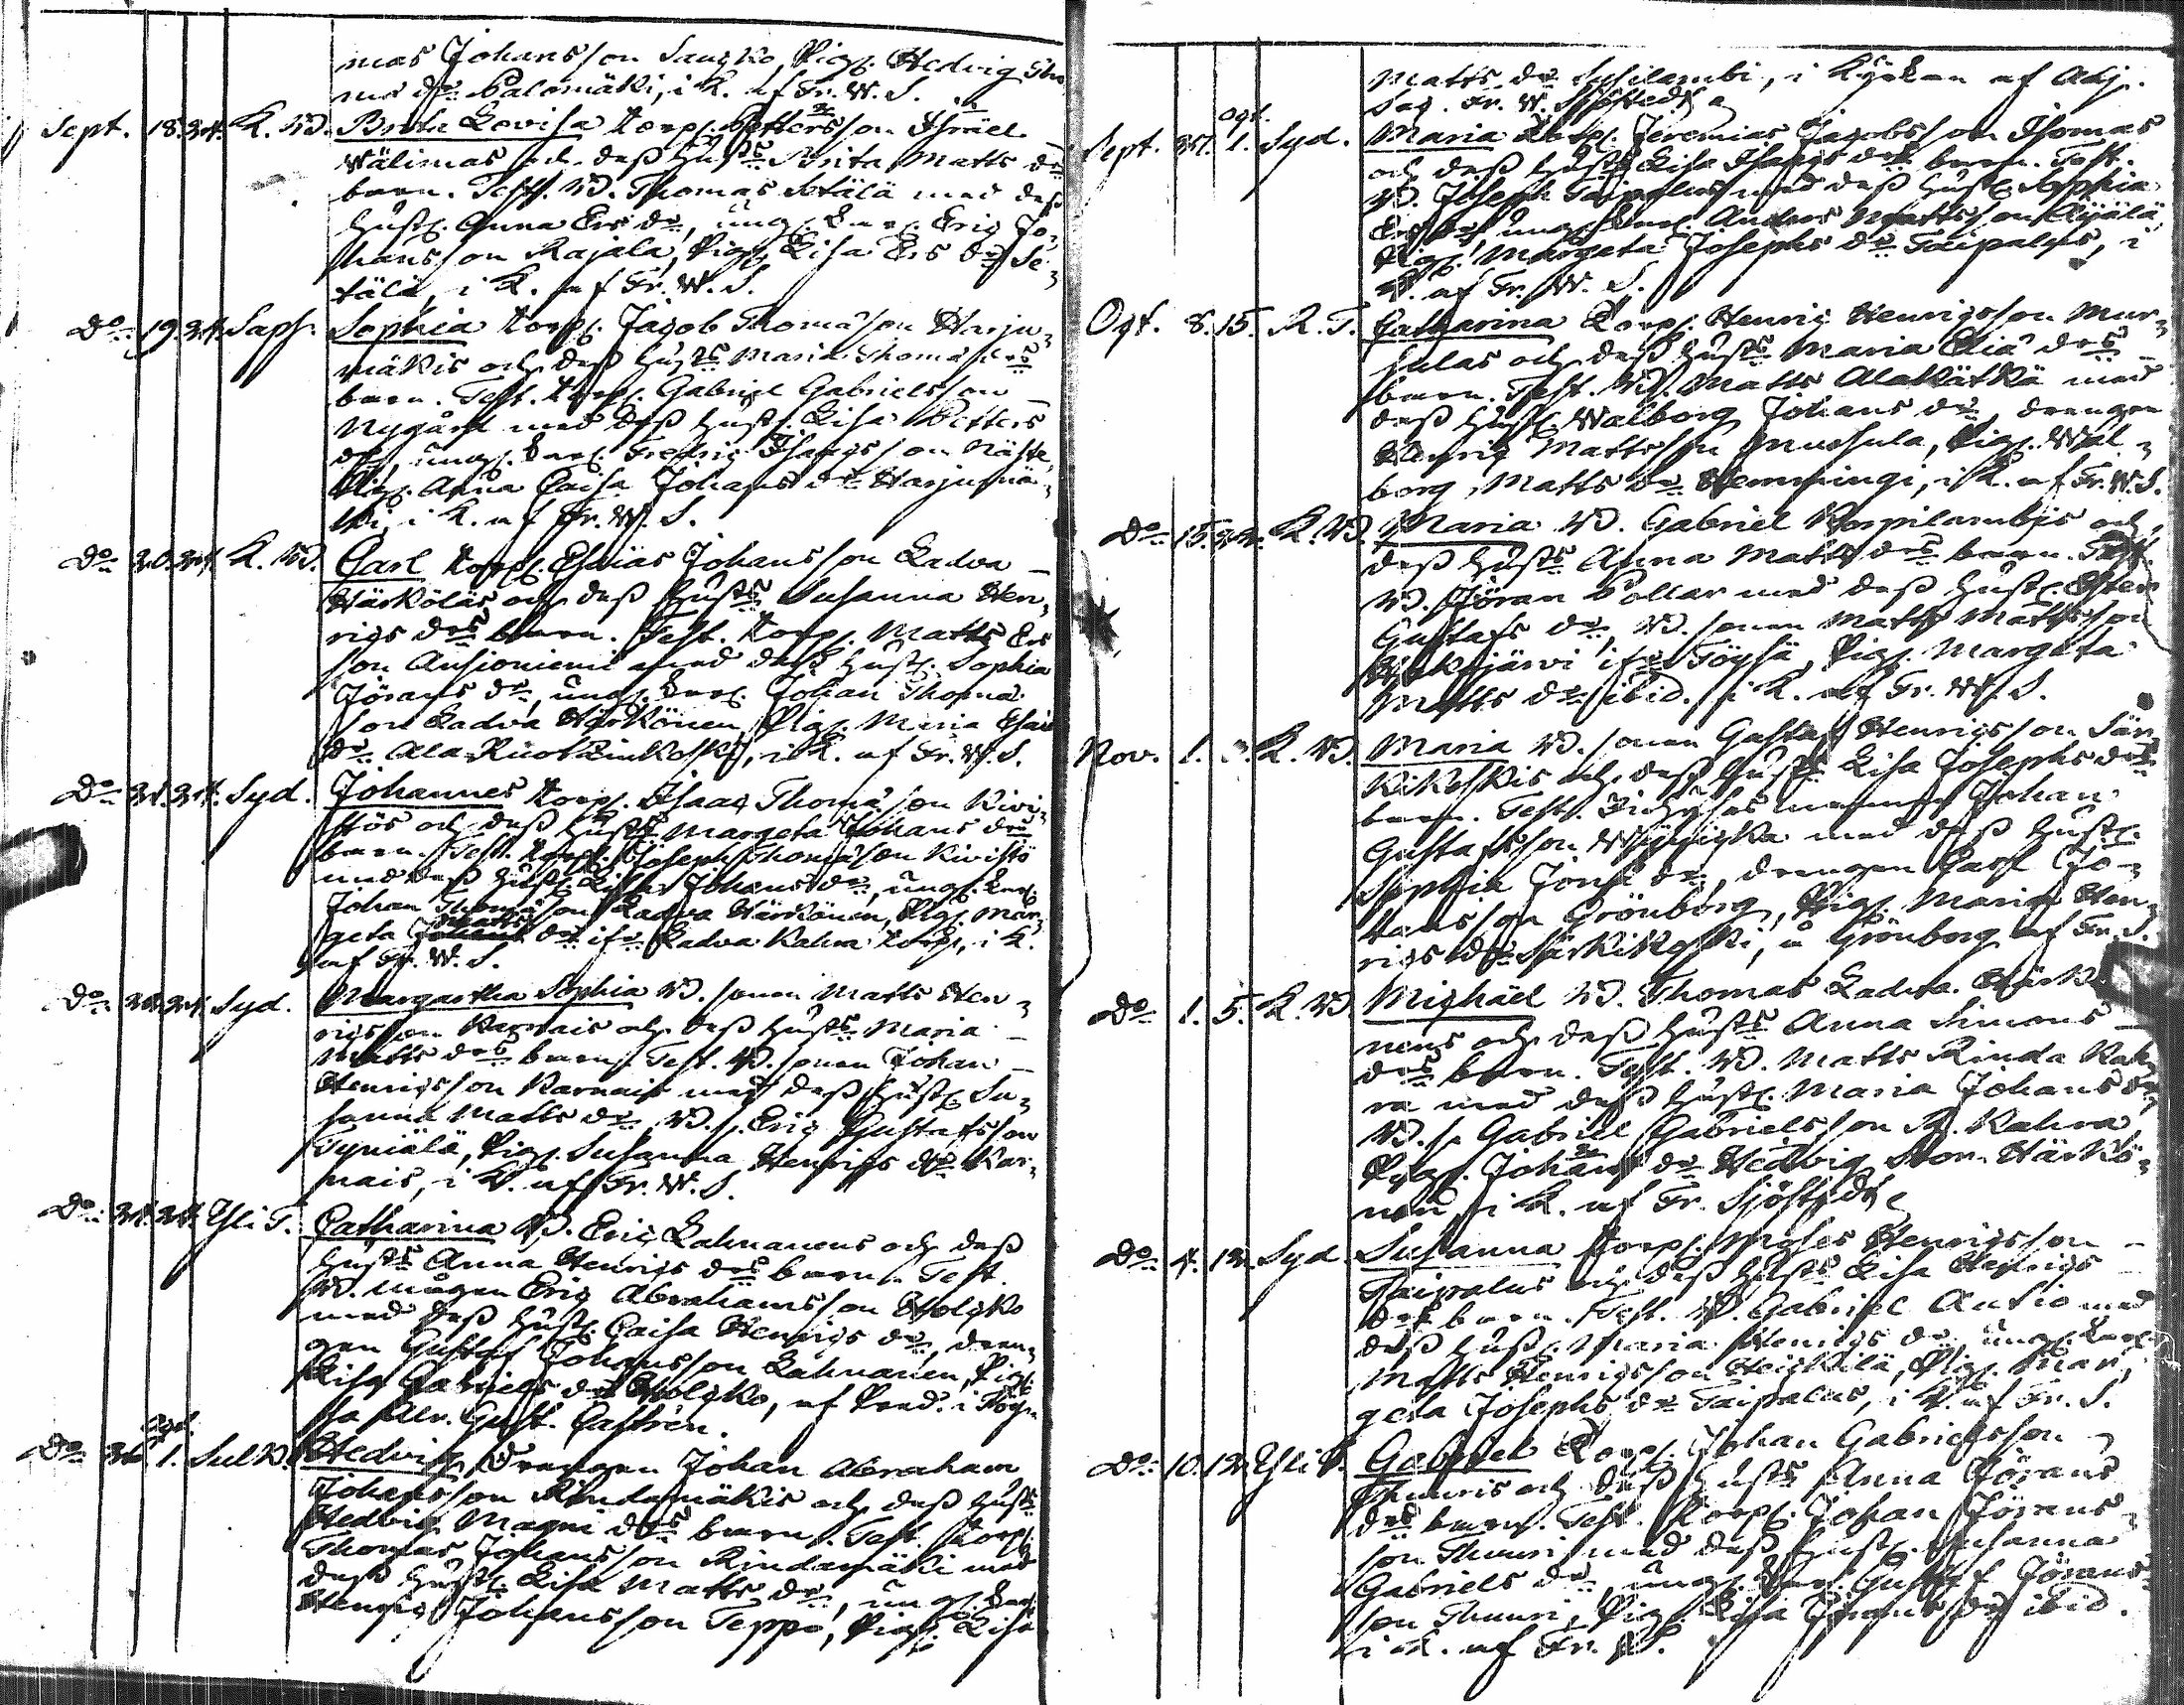 mas Johansson Saucko, Pig. Hedvig Tho
mæ dr Palomäki, i K. af Fr. W. S.
Sept. 18. 24. K. W. Brita Lovisa Torp. Pettersson Israel
Wälimas och dess Hust. Brita Matts drs
barn. Test. B. Thomas Setälä med dess
Hust. Anna Ers dr, ung. kar. Eric Jo-
hansson Rajala, Pig. Lisa Ers dr Se-
tälä, i K. af Fr. W. S.
Do 19. 24. Saps. Sophia Torp. Jacob Thomasson Harju-
mäkis och dess Hust. Maria Thomæ drs
barn. Test. Torp. Gabriel Gabrielsson
Nygård med dess Hust. Lisa Petters
dr, ung. kar. Fredric Isacsson Näste,
Pig. Anna Caisa Johans dr Harjumä-
ki, i K. af Fr. W. S.
Do 20. 24. K. W. Carl Torp. Esaias Johansson Ladva
Härköläs och dess Hust. Susanna Hen-
rics drs barn. Test. Torp. Matts Ers
son Ansioniemi med dess Hust. Sophia
Jörans dr, ung. kar. Johan Thomæ
son Ladva Härkönen, Pig. Maria Esaiæ
dr Ala Ruotzinkoski, i K. af Fr. W. S.
Do 21. 24. Syd. Johannes Torp. Isaac Thomæson Kivi-
stös och dess Hust. Margeta Johans drs
barn. Test. Torp. Joseph Thomæson Kivistö
med dess Hust. Lisa Johans dr, ung. kar.
Johan Thomæson Ladva Härkönen, Pig. Mar-
geta Matts dr ifr. Ladva Kahra Torp, i K.
af Fr. W. S.
Do 24. Syd. Margaretha Sophia B. sonen Matts Hen-
ricsson Karnais och dess Hust. Maria
Matts drs barn. Test. B. sonen Johan
Henricsson Karnais med dess Hust. Su-
sanna Matts dr, B. s. Eric Gustafsson
Tyniälä, Pig. Susanna Henrics dr Kar-
nais, i K. af Fr. W. S.
Do 24. Yli T. Catharina B. Eric Lahnanens och dess
Hust. Anna Henrics drs barn. Test.
B. mågen Eric Abrahamsson Holcko
med dess Hust. Caisa Henrics dr, dren-
gen Gustaf Johansson Lahnanen, Pig.
Lisa Gabriels dr Holcko, af Pred. i Töys-
sä Alr. Gust. Castrén.
Oct.
Do 1. Sulk. Hedvig Drengen Johan Abraham
Johansson Rindamäkis och dess Hust.
Hedvig Magni drs barn. Test. Torp.
Thomas Johansson Rindamäki med
dess Hust. Lisa Matts dr, ung. kar.
Henric Johansson Teppo, Pig. Lisa
Matts dr Sysilambi, i Kyrkan af Adj.
Sac. Fr. W. Sjöstedt
Oct.
Sept. 1. Syd. Maria Torp. Jeremias Jacobsson Thomas
och dess Hust. Lisa Isacs drs barn. Test.
B. Joseph Taipalus med dess Hust. Sophia
Ers dr, ung. kar. Anders Mattsson Äijälä,
Pig. Margeta Josephs dr Taipalus, i
K. af Fr. W. S.
Oct. 8. 15. R. T. Catharina Torp. Henric Henricsson Mur-
sulas och dess Hust. Maria Eliæ drs
barn. Test. B. Matts Alakätkä med
dess Hust. Walborg Johans dr, drengen
Henric Mattsson Mursula, Pig. Wal-
borg Matts dr Hemmingi, i K. af Fr. W. S.
Do 15. 22. K. W. Maria B. Gabriel Korpilambis och
dess Hust. Anna Matts drs barn. Test.
B. Jöran Pollar med dess Hust. Ester
Gustafs dr, B. sonen Matts Mattsson
Hakojärvi ifr. Töysä, Pig. Margeta
Matts dr ibid. i K. af Fr. W. S.
Nov. 1. 5. K. W. Maria B. sonen Gustaf Henricsson Sär-
kikoskis och dess Hust. Lisa Josephs drs
barn. Test. Johan
Gustafsson med dess Hust.
Sophia Jonæ dr, drengen Carl Jo-
hansson Grönborg, Pig. Maria Hen-
rics dr Särkikoski, å Grönborg af Fr. S.
Do 1. 5. K. W. Michäel B. Thomas Ladva Härkö
nens och dess Hust. Anna Simons
drs barn. Test. B. Matts Rinda Kah-
ra med dess Hust. Maria Johans dr,
B. s. Gabriel Gabrielsson R. Kahra,
Pig. Johans dr Hedvig Stor Härkö-
nen, i K. af Fr. Sjöstedt
Do 4. 12. Syd. Susanna Torp. Moses Henricsson
Taipalus och dess Hust. Lisa Henrics
drs barn. Test. B. Gabriel Autio med
dess Hust. Maria Henrics dr, ung. kar.
Matts Henricsson Heickilä, Pig. Mar-
geta Josephs dr Taipalus, i K. af Fr. S.
Do 10. 12. Yli T. Gabriel Torp. Johan Gabrielsson
Thuuris och dess Hust. Anna Jörans
drs barn. Test. Torp. Johan Jörans-
son Thuuri med dess Hust. Susanna
Gabriels dr, ung. kar. Gustaf Jörans-
son Thuuri, Pig. Lisa Jörans dr ibid.
i K. af Fr. S.